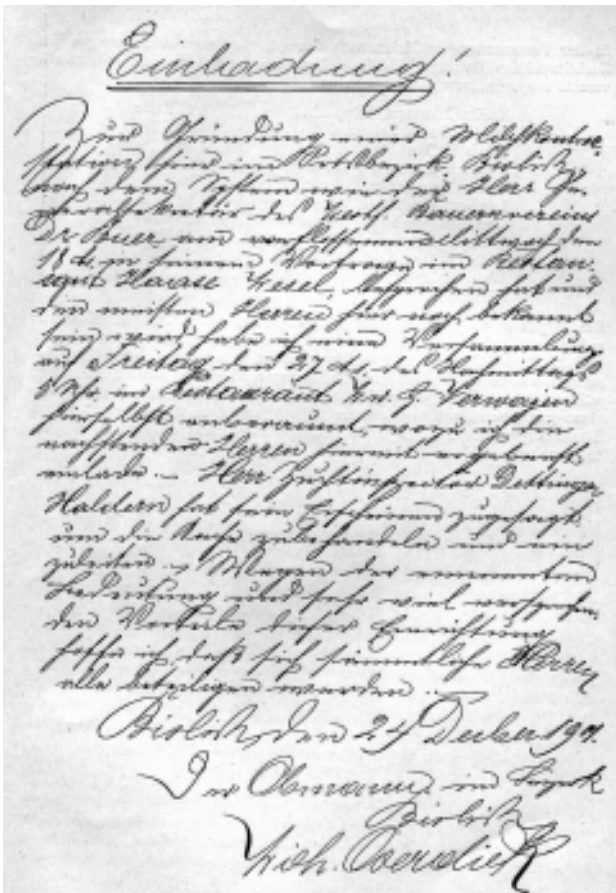 Einladung!
Zur Gründung eines Milchkontroll-
station, hier im Ortsbezirk Bislich,
nach dem System wie der Herr Ge-
neralsekretär des Westf. Bauernvereins
Dr. Buer, am verflossenen Mittwoch den
18 d. in seinem Vortrage im Restau-
rant Haase Wesel, besprochen hat und
den meisten Herren hier noch bekannt
sein wird habe ich eine Versammlung
auf Freitag den 27 ds. des Nachmittags
Uhr im Restaurant Verwayen
hierselbst anberaumt, wozu ich die
nachstehenden Herren hiermit ergebenst
einlade. – Herr Zuchtinspektor Dettinger
Haldern hat sein Erscheinen zugesagt
um die Sache zu behandeln und ein
zuleiten. – Wegen der enormen
Bedeutung und sehr viel versprechen-
den Vorteile dieser Einrichtung
hoffe ich daß sich sämmtliche Herren
alle beteiligen werden.
Bislich, den
Der Obmann im Bezirk
Bislich
Wilh. Overdiek